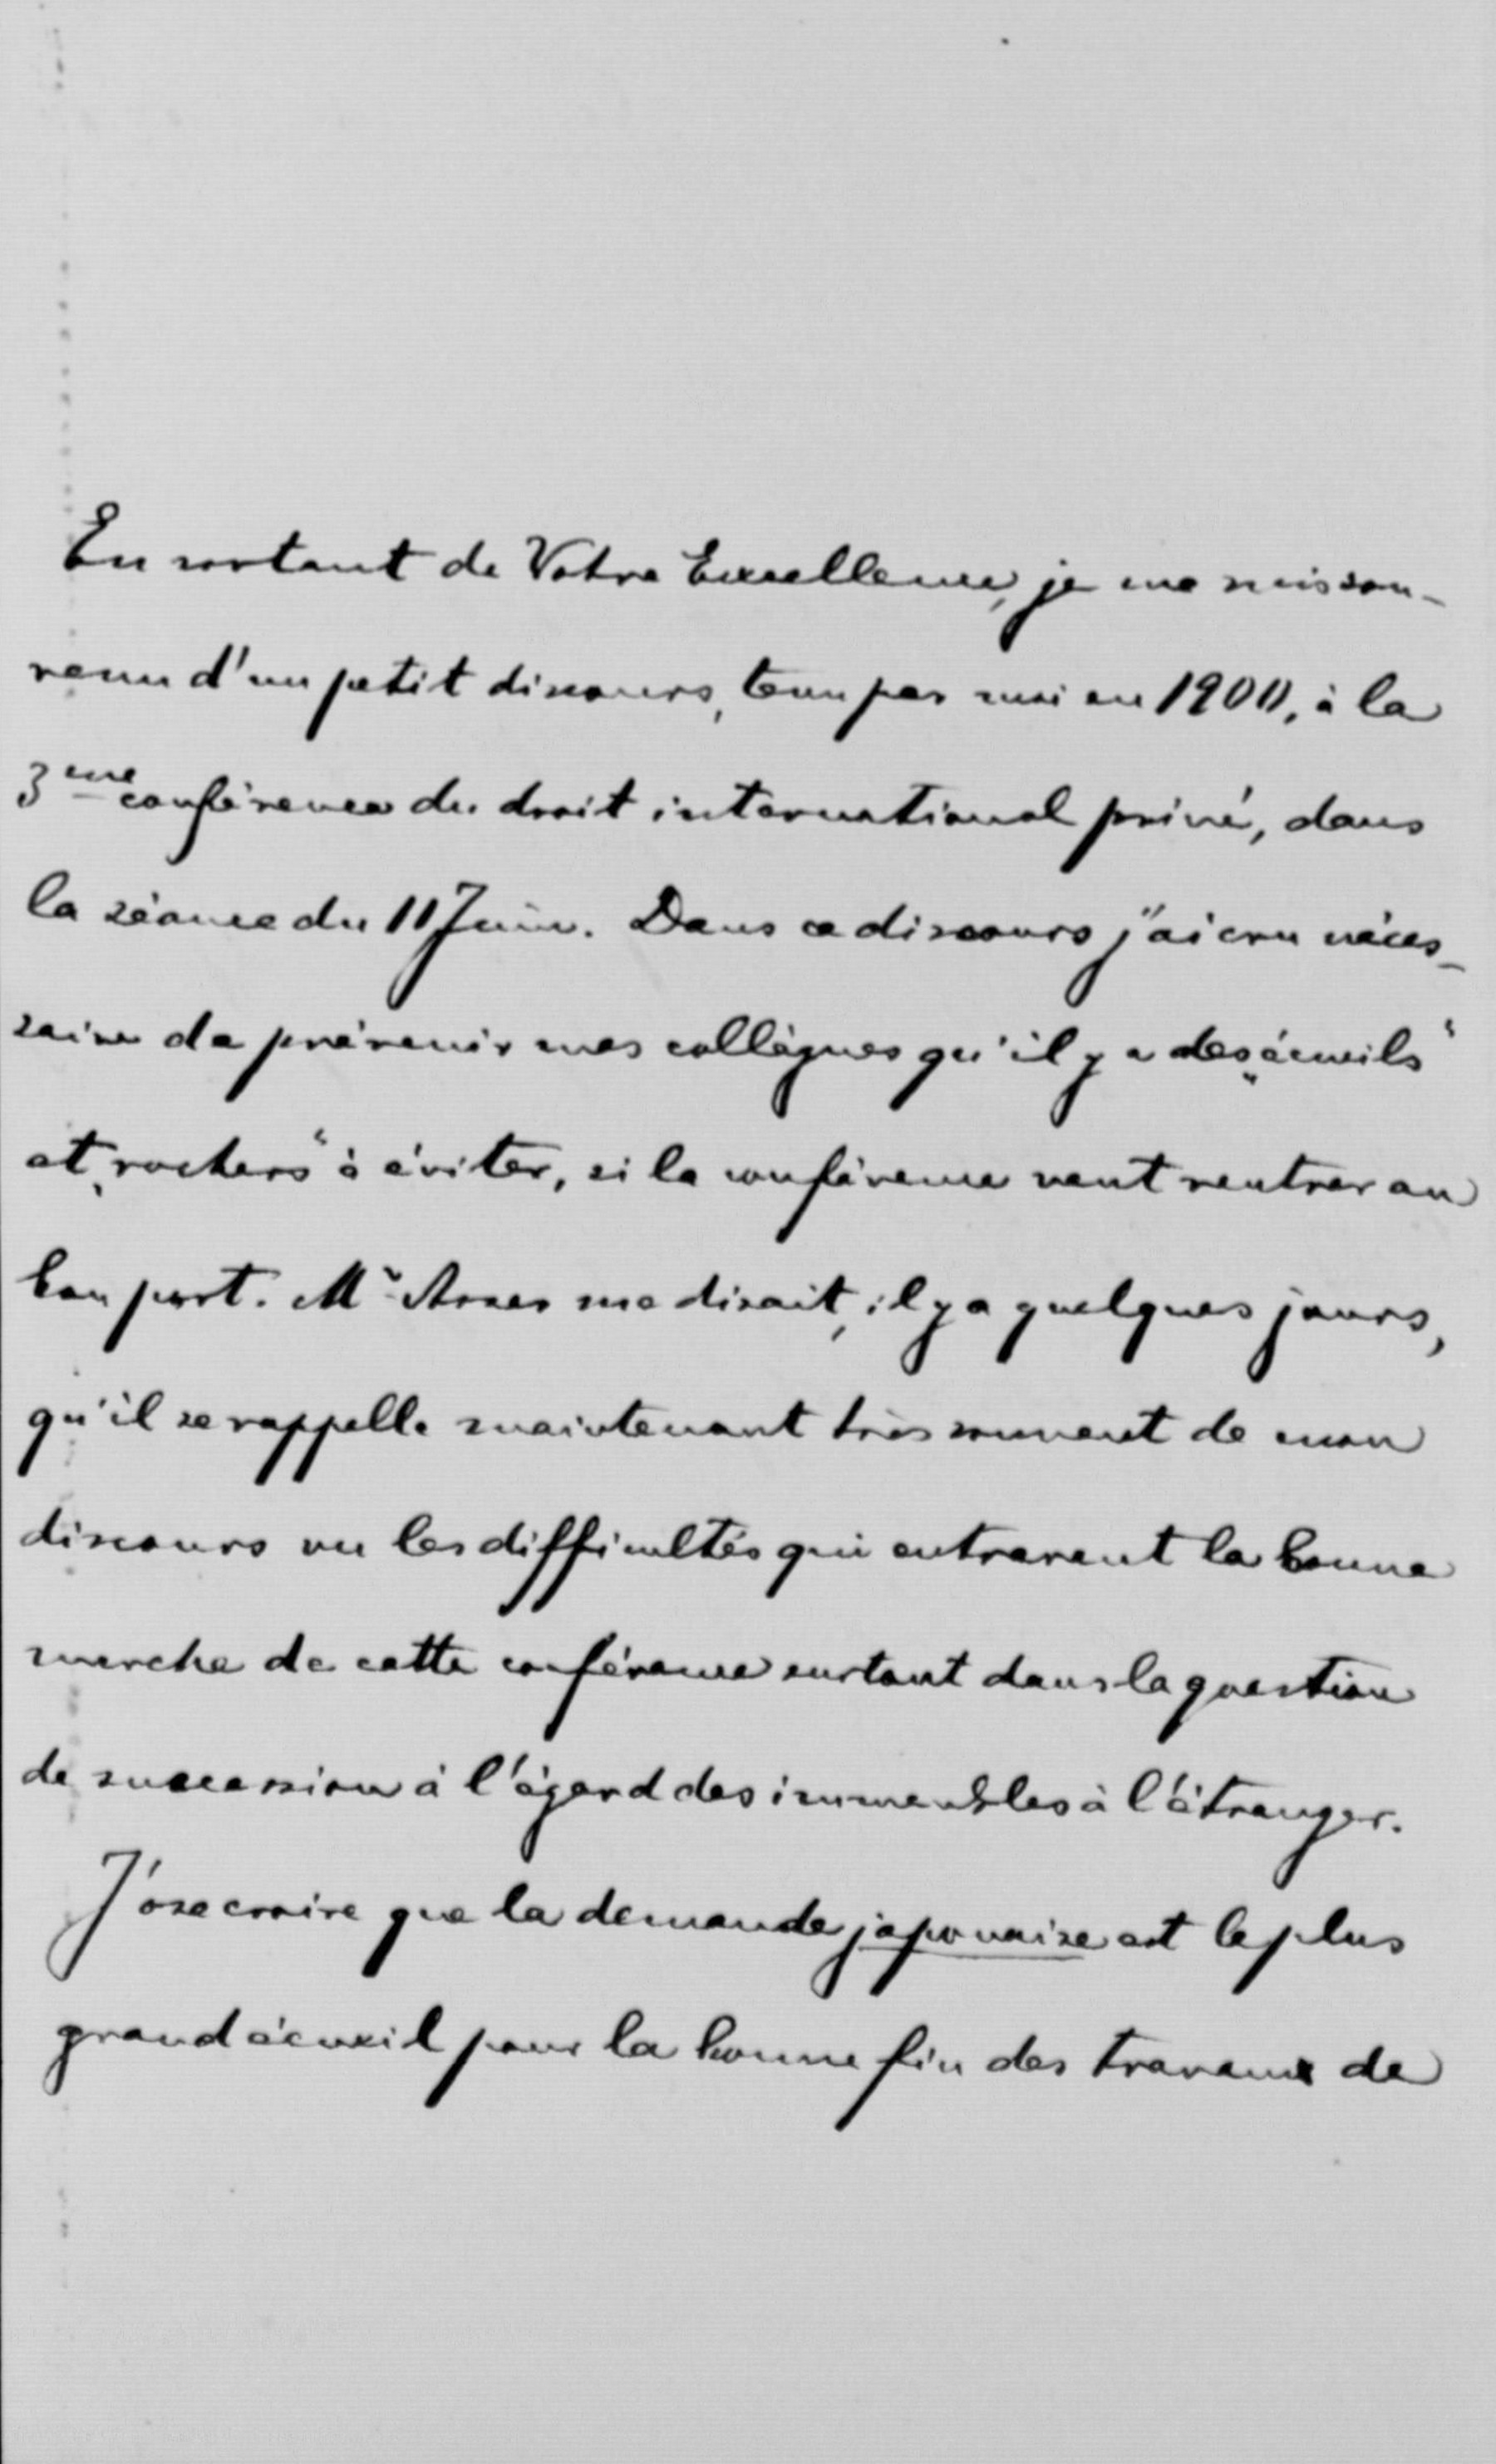 En sortant de Votre Excellence, je me suis sou-
venu d'un petit discours, tenu par moi en 1900, à la
3ème conférence du droit international privé, dans
la séance du 11 Juin. Dans ce discours j'ai cru néces-
saire de prévenir mes collègues qu'il y a des „écueils“
et „rochers“ à éviter, si la conférence veut rentrer au
bon port. Mr Asser me disait, il y a quelques jours,
qu'il se rappelle maintenant très souvent de mon
discours vu les difficultés qui entravent la bonne
marche de cette conférence surtout dans la question
de succession à l'égard des immeubles à l'étranger.
J'ose croire que la demande japonaise est le plus
grand écueil pour la bonne fin des travaux de